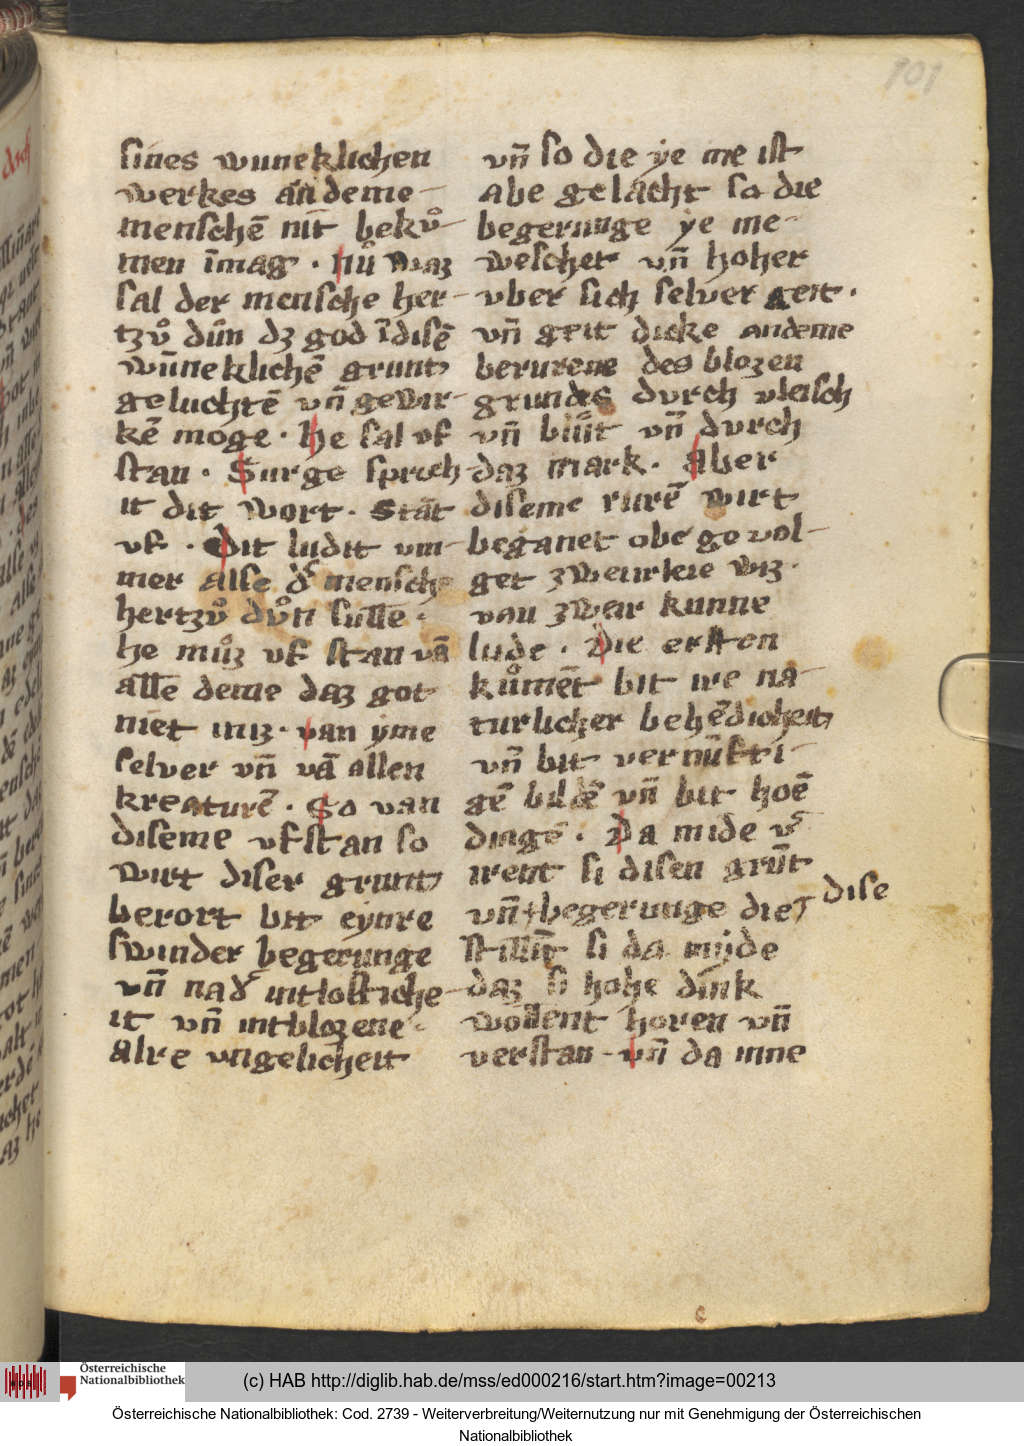 101
sines wuneklichen
werkes an deme
menschē nit beků
men īmag · Nů waz
sal der mensche her
tzů důn dz god ī disē
wūneklichē grunt
geluchtē vn̄ gewir
kē moge · He sal vf
stan · Surge sprich
it dit wort · stāt
vf · Dit ludit vm
mer alse d' mensch
hertzů důn sulle ·
he můz vf stan vā
alle deme daz got
niet iniz · van yme
selver vn̄ vā allen
kreaturē · So van
diseme vfstan so
wirt diser grunt
berort bit eynre
swinder begerunge
vn̄ na d' intlostiche
it vn̄ intblozene ·
alre ungelicheit
vn̄ so die ye me ist
abe gelacht so die
begerunge ye me
weschet vn̄ hoher
vber sich selver geit ·
vn̄ geit dicke an deme
berurene des blozen
grundes durch vleisch
vn̄ blůt vn̄ durch
daz mark · Aber
diseme rurē wirt
beganet obe ge vol
get zweirleie wiz ·
van zweir kunne
lude · Die ersten
kůmēt bit ire na
turlicher behēdicheit
vn̄ bit vernūfti
gē bildē vn̄ bit hoē
dingē · Da mide v'
irent si disen grūt
vn̄ + begerunge die dise
stillīt si da mijde
daz si hohe dink
wollent horen vn̄
verstan · vn̄ da inne
Österreichische
Nationalbibliothek
(c) HAB http://diglib.hab.de/mss/ed000216/start.htm?image=00213
Österreichische Nationalbibliothek: Cod. 2739 - Weiterverbreitung/Weiternutzung nur mit Genehmigung der Österreichischen
Nationalbibliothek